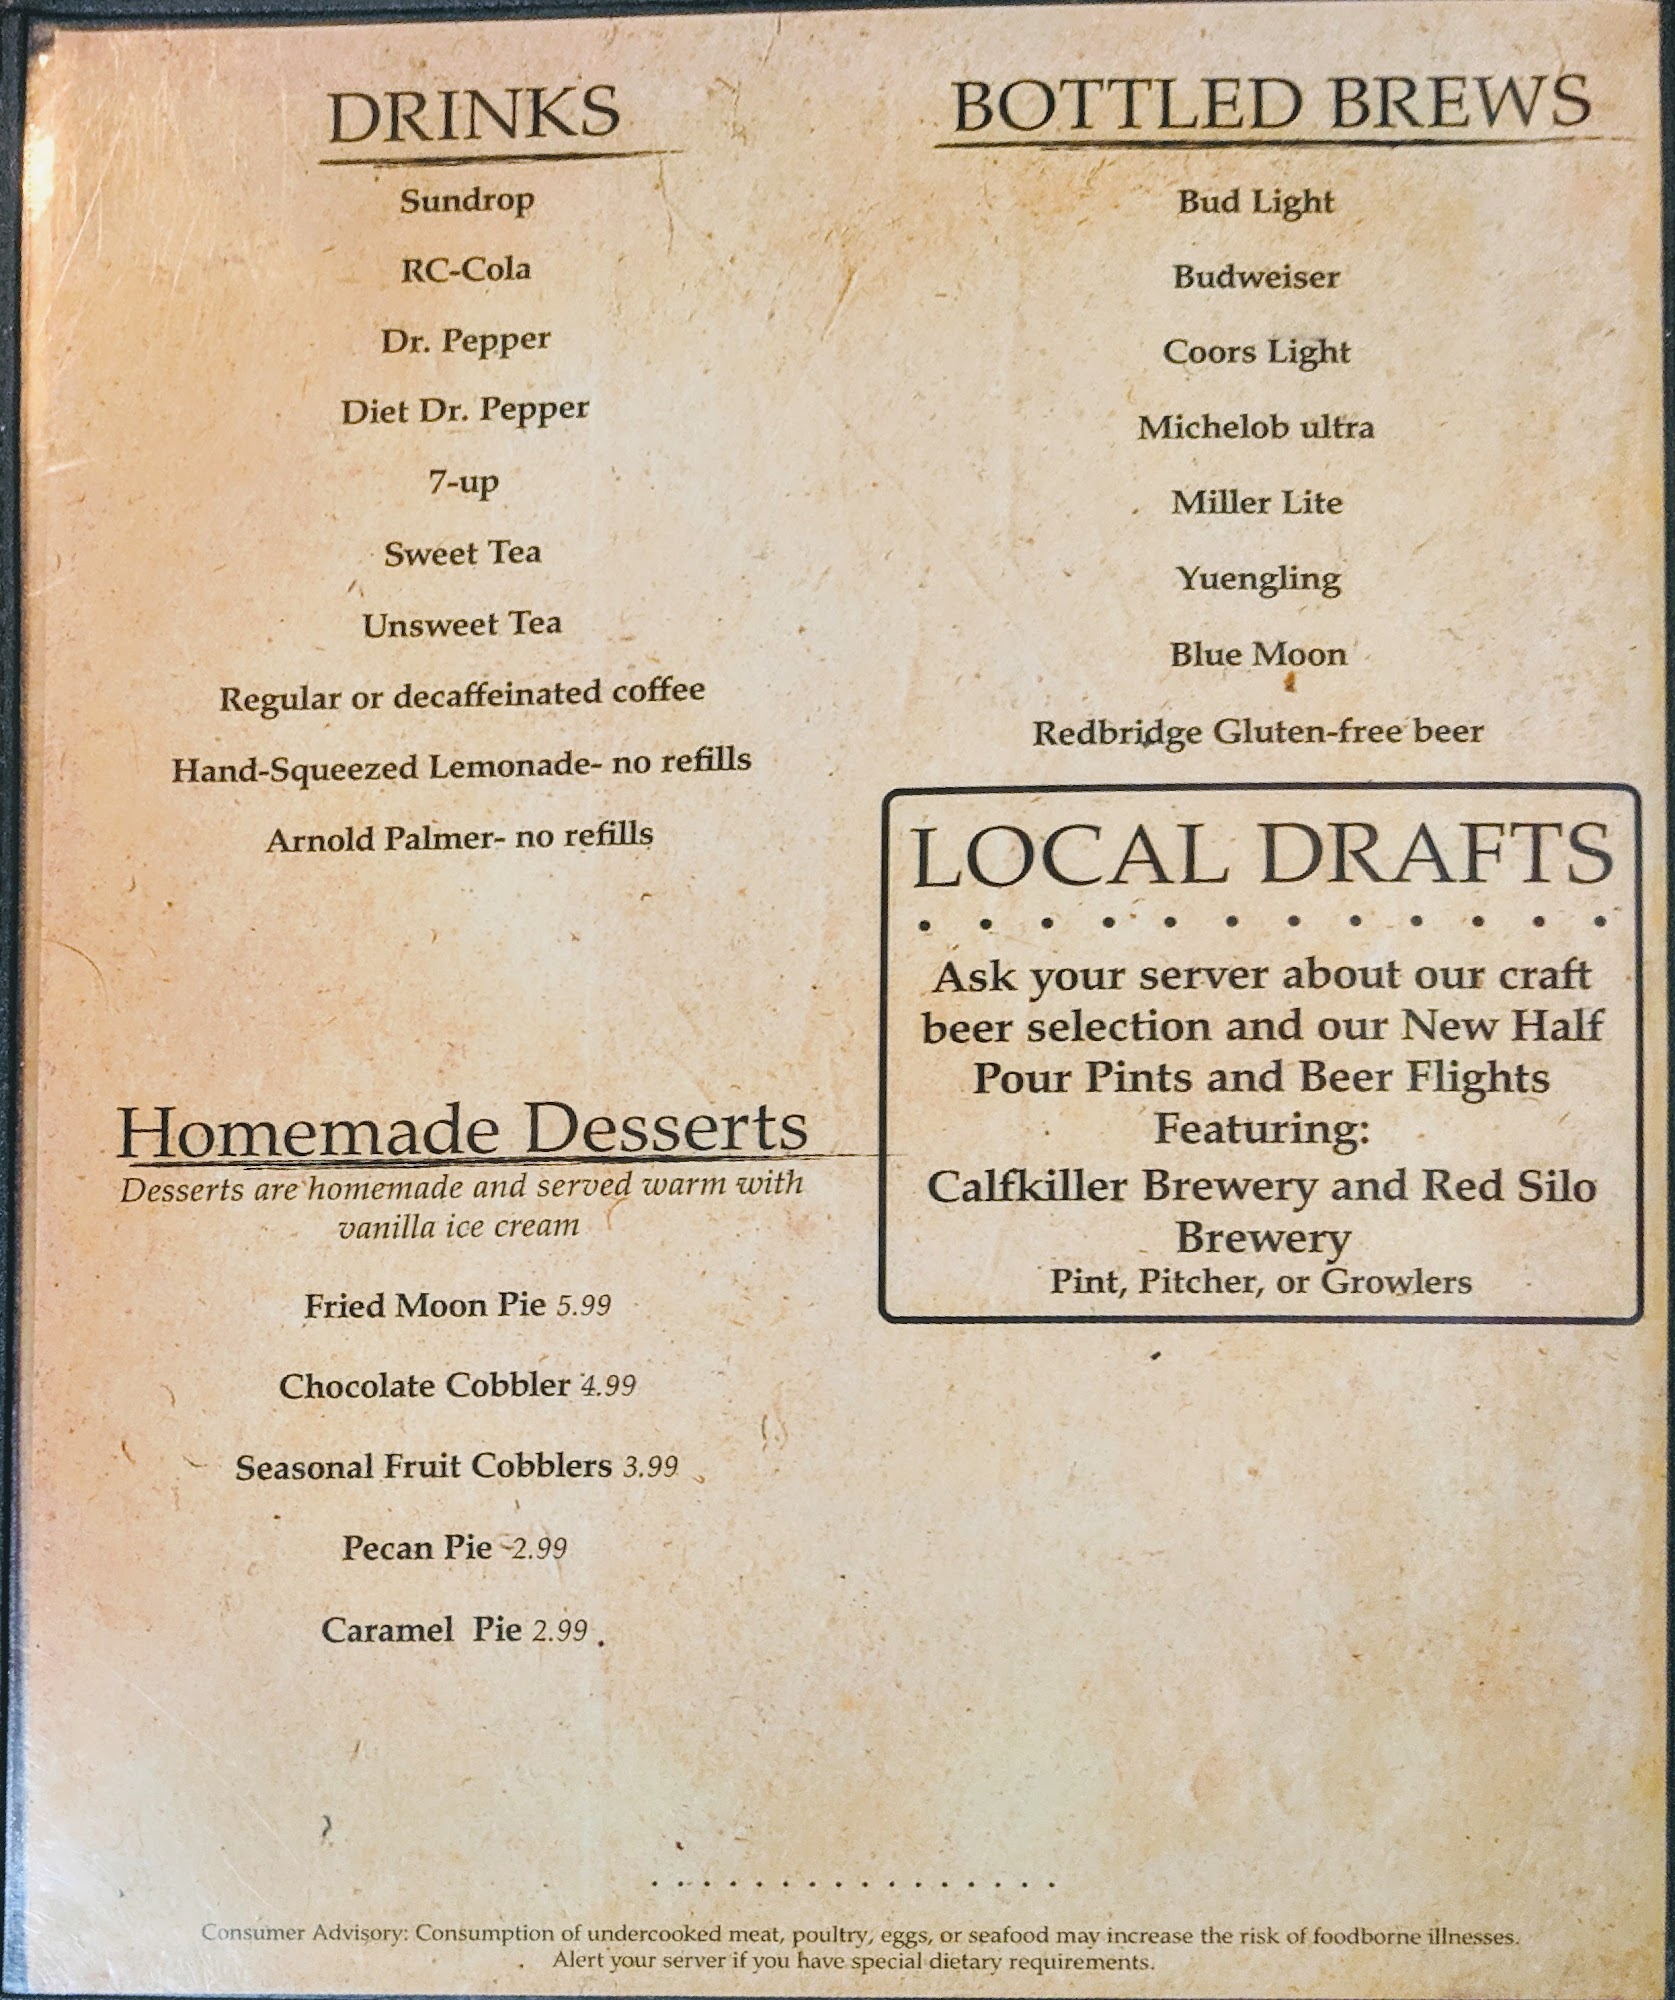 DRINKS
Sundrop
RC-Cola
Dr. Pepper
Diet Dr. Pepper
7-up
Sweet Tea
Unsweet Tea
Regular or decaffeinated coffee
Hand-Squeezed Lemonade- no refills
Arnold Palmer- no refills
Homemade Desserts
Desserts are homemade and served warm with
vanilla ice cream
Fried Moon Pie 5.99
Chocolate Cobbler 4.99
Seasonal Fruit Cobblers 3.99
Pecan Pie 2.99
Caramel Pie 2.99
BOTTLED BREWS
Bud Light
Budweiser
Coors Light
Michelob ultra
Miller Lite
Yuengling
Blue Moon
Redbridge Gluten-free beer
LOCAL DRAFTS
Ask your server about our craft
beer selection and our New Half
Pour Pints and Beer Flights
Featuring:
Calfkiller Brewery and Red Silo
Brewery
Pint, Pitcher, or Growlers
Consumer Advisory: Consumption of undercooked meat, poultry, eggs, or seafood may increase the risk of foodborne illnesses.
Alert your server if you have special dietary requirements.